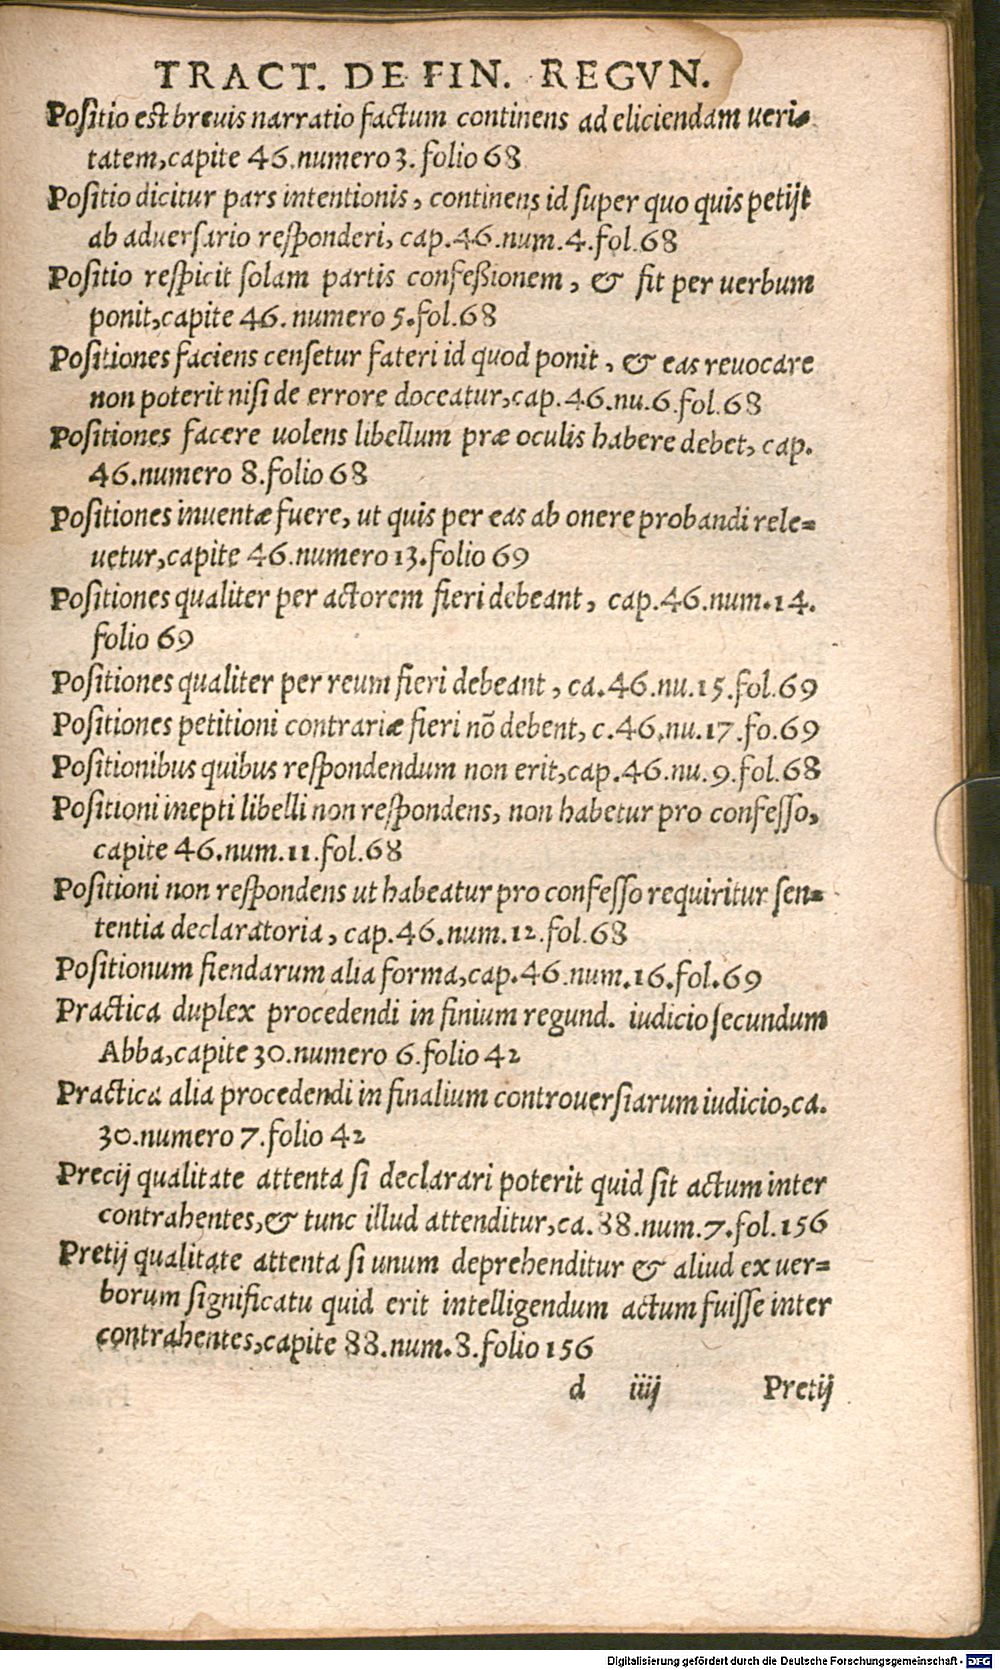 TRACT. DE FIN. REGVN.
Positio est breuis narratio factum continens ad eliciendam ueri-
tatem, capite 46. numero 3. folio 68
Positio dicitur pars intentionis, continens id super quo quis petijt
ab aduersario responderi, cap. 46. num. 4. fol. 68
Positio respicit solam partis confeßionem, & fit per uerbum
ponit, capite 46. numero 5. fol. 68
Positiones faciens censetur fateri id quod ponit, & eas reuocare
non poterit nisi de errore doceatur, cap. 46. nu. 6. fol. 68
Positiones facere uolens libellum præ oculis habere debet, cap.
46. numero 8. folio 68
Positiones inuentæ fuere, ut quis per eas ab onere probandi rele=
uetur, capite 46. numero 13. folio 69
Positiones qualiter per actorem fieri debeant, cap. 46. num. 14.
folio 69
Positiones qualiter per reum fieri debeant, ca. 46. nu. 15. fol. 69
Positiones petitioni contrariæ fieri nō debent, c. 46. nu. 17. fo. 69
Positionibus quibus respondendum non erit, cap. 46. nu. 9. fol. 68
Positioni inepti libelli non respondens, non habetur pro confesso,
capite 46. num. 11. fol. 68
Positioni non respondens ut habeatur pro confesso requiritur sen=
tentia declaratoria, cap. 46. num. 12. fol. 68
Positionum fiendarum alia forma, cap. 46. num. 16. fol. 69
Practica duplex procedendi in finium regund. iudicio secundum
Abba, capite 30. numero 6. folio 42
Practica alia procedendi in finalium controuersiarum iudicio, ca.
30. numero 7. folio 42
Precij qualitate attenta si declarari poterit quid sit actum inter
contrahentes, & tunc illud attenditur, ca. 88. num. 7. fol. 156
Pretij qualitate attenta si unum deprehenditur & aliud ex uer=
borum significatu quid erit intelligendum actum fuisse inter
contrahentes, capite 88. num. 8. folio 156
d iiij Pretij
Digitalisierung gefördert durch die Deutsche Forschungsgemeinschaft - DFG